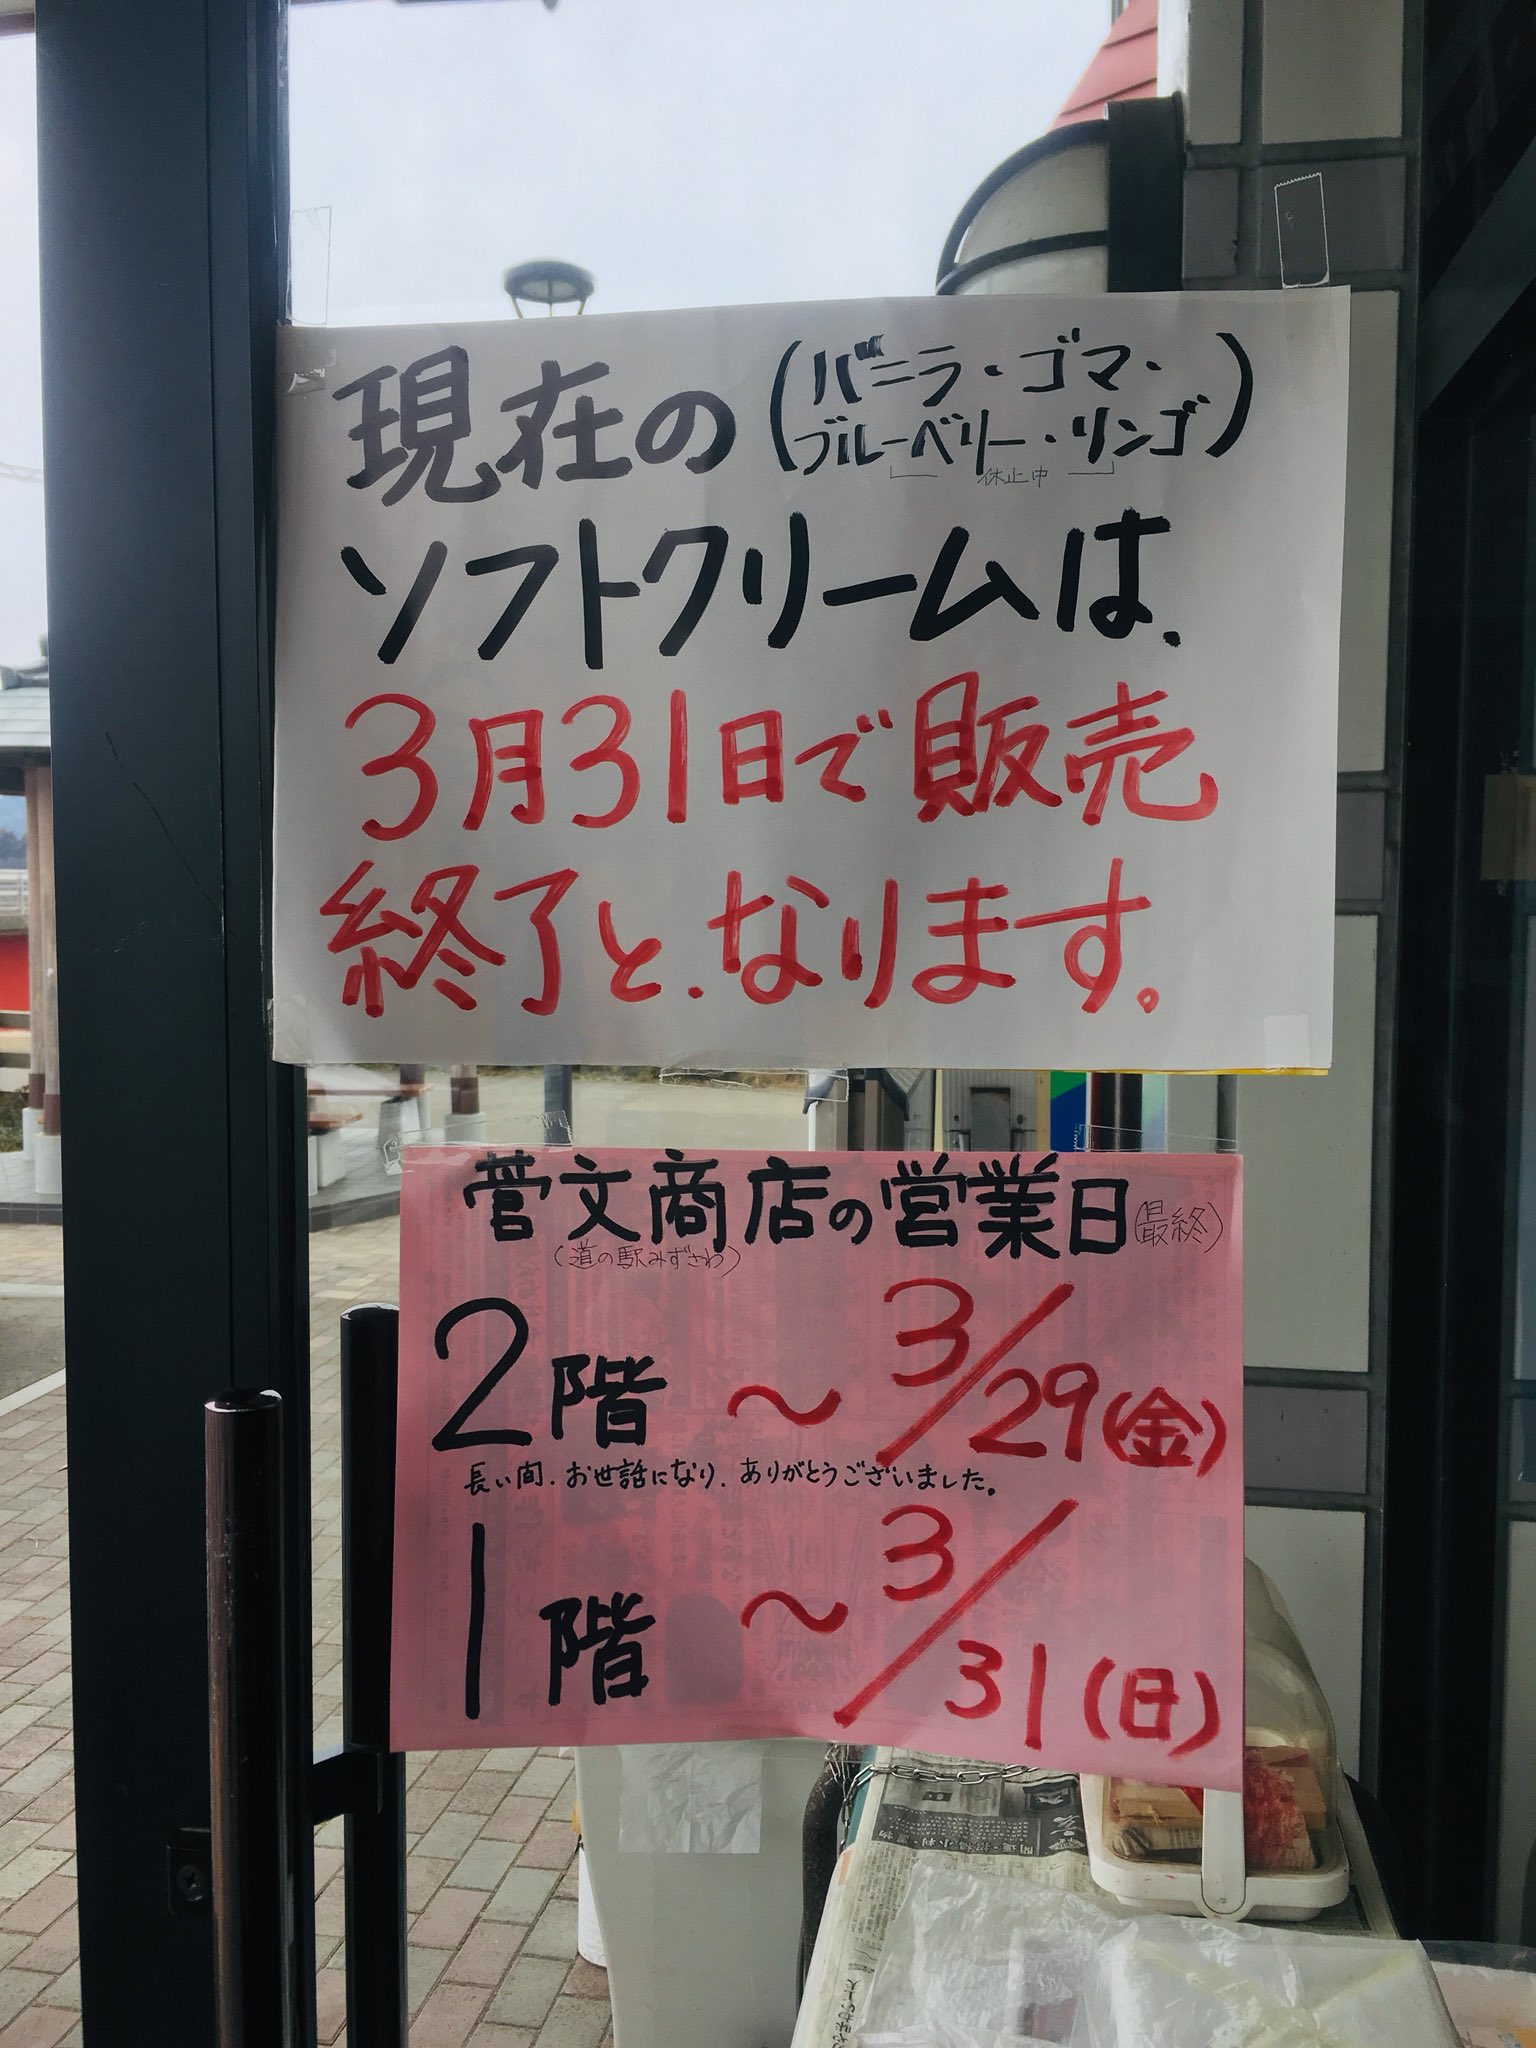 現在の(バニラ・ゴマ・
ブルーベリー・リンゴ)
休止中
ソフトクリームは、
3月31日で販売
終了と、なります。
菅文商店の営業日(最終)
(道の駅みずさわ)
2階 〜 3/29(金)
長い間、お世話になり、ありがとうございました。
1階 〜 3/31(日)